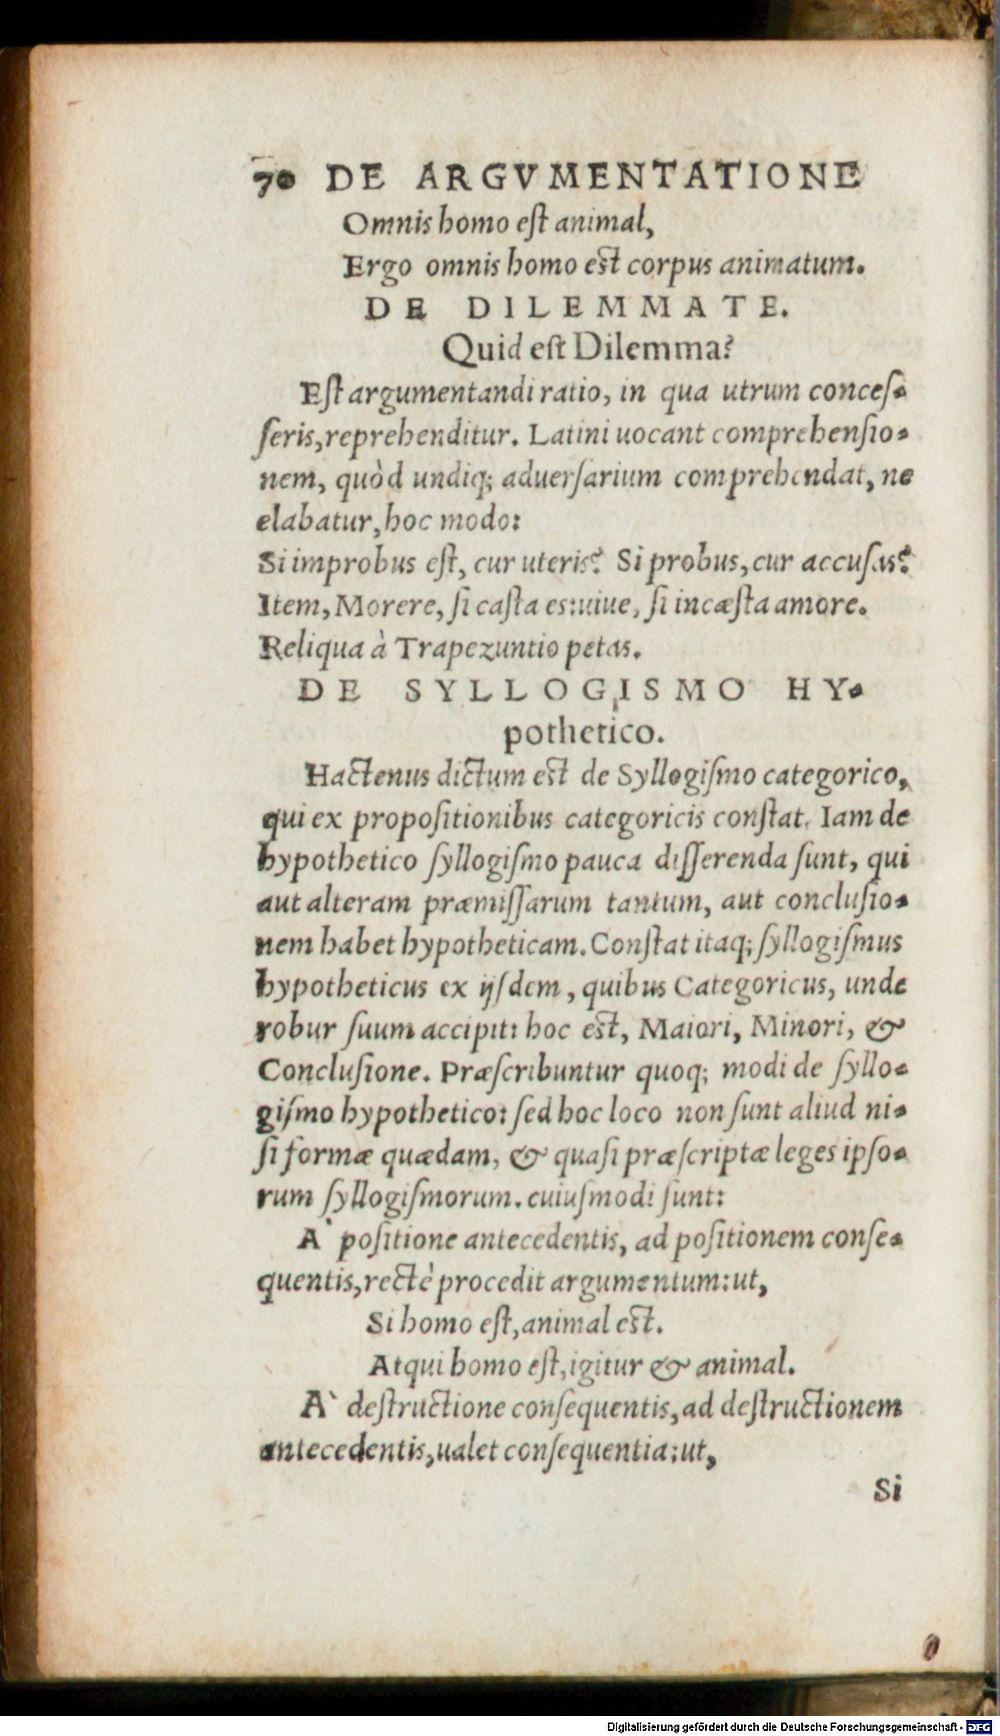 70 DE ARGVMENTATIONE
Omnis homo est animal,
Ergo omnis homo est corpus animatum.
DE DILEMMATE.
Quid est Dilemma?
Est argumentandi ratio, in qua utrum conces-
seris, reprehenditur. Latini uocant comprehensio-
nem, quòd undiq; aduersarium comprehendat, ne
elabatur, hoc modo:
Si improbus est, cur uteris? Si probus, cur accusas?
Item, Morere, si casta es: uiue, si incæsta amore.
Reliqua à Trapezuntio petas.
DE SYLLOGISMO HY-
pothetico.
Hactenus dictum est de Syllogismo categorico,
qui ex propositionibus categoricis constat. Iam de
hypothetico syllogismo pauca disserenda sunt, qui
aut alteram præmissarum tantum, aut conclusio-
nem habet hypotheticam. Constat itaq; syllogismus
hypotheticus ex ijsdem, quibus Categoricus, unde
robur suum accipit: hoc est, Maiori, Minori, &
Conclusione. Præscribuntur quoq; modi de syllo-
gismo hypothetico: sed hoc loco non sunt aliud ni-
si formæ quædam, & quasi præscriptæ leges ipso-
rum syllogismorum. cuiusmodi sunt:
A` positione antecedentis, ad positionem conse-
quentis, rectè procedit argumentum: ut,
Si homo est, animal est.
Atqui homo est, igitur & animal.
A` destructione consequentis, ad destructionem
antecedentis, ualet consequentia: ut,
Si
Digitalisierung gefördert durch die Deutsche Forschungsgemeinschaft - DFG